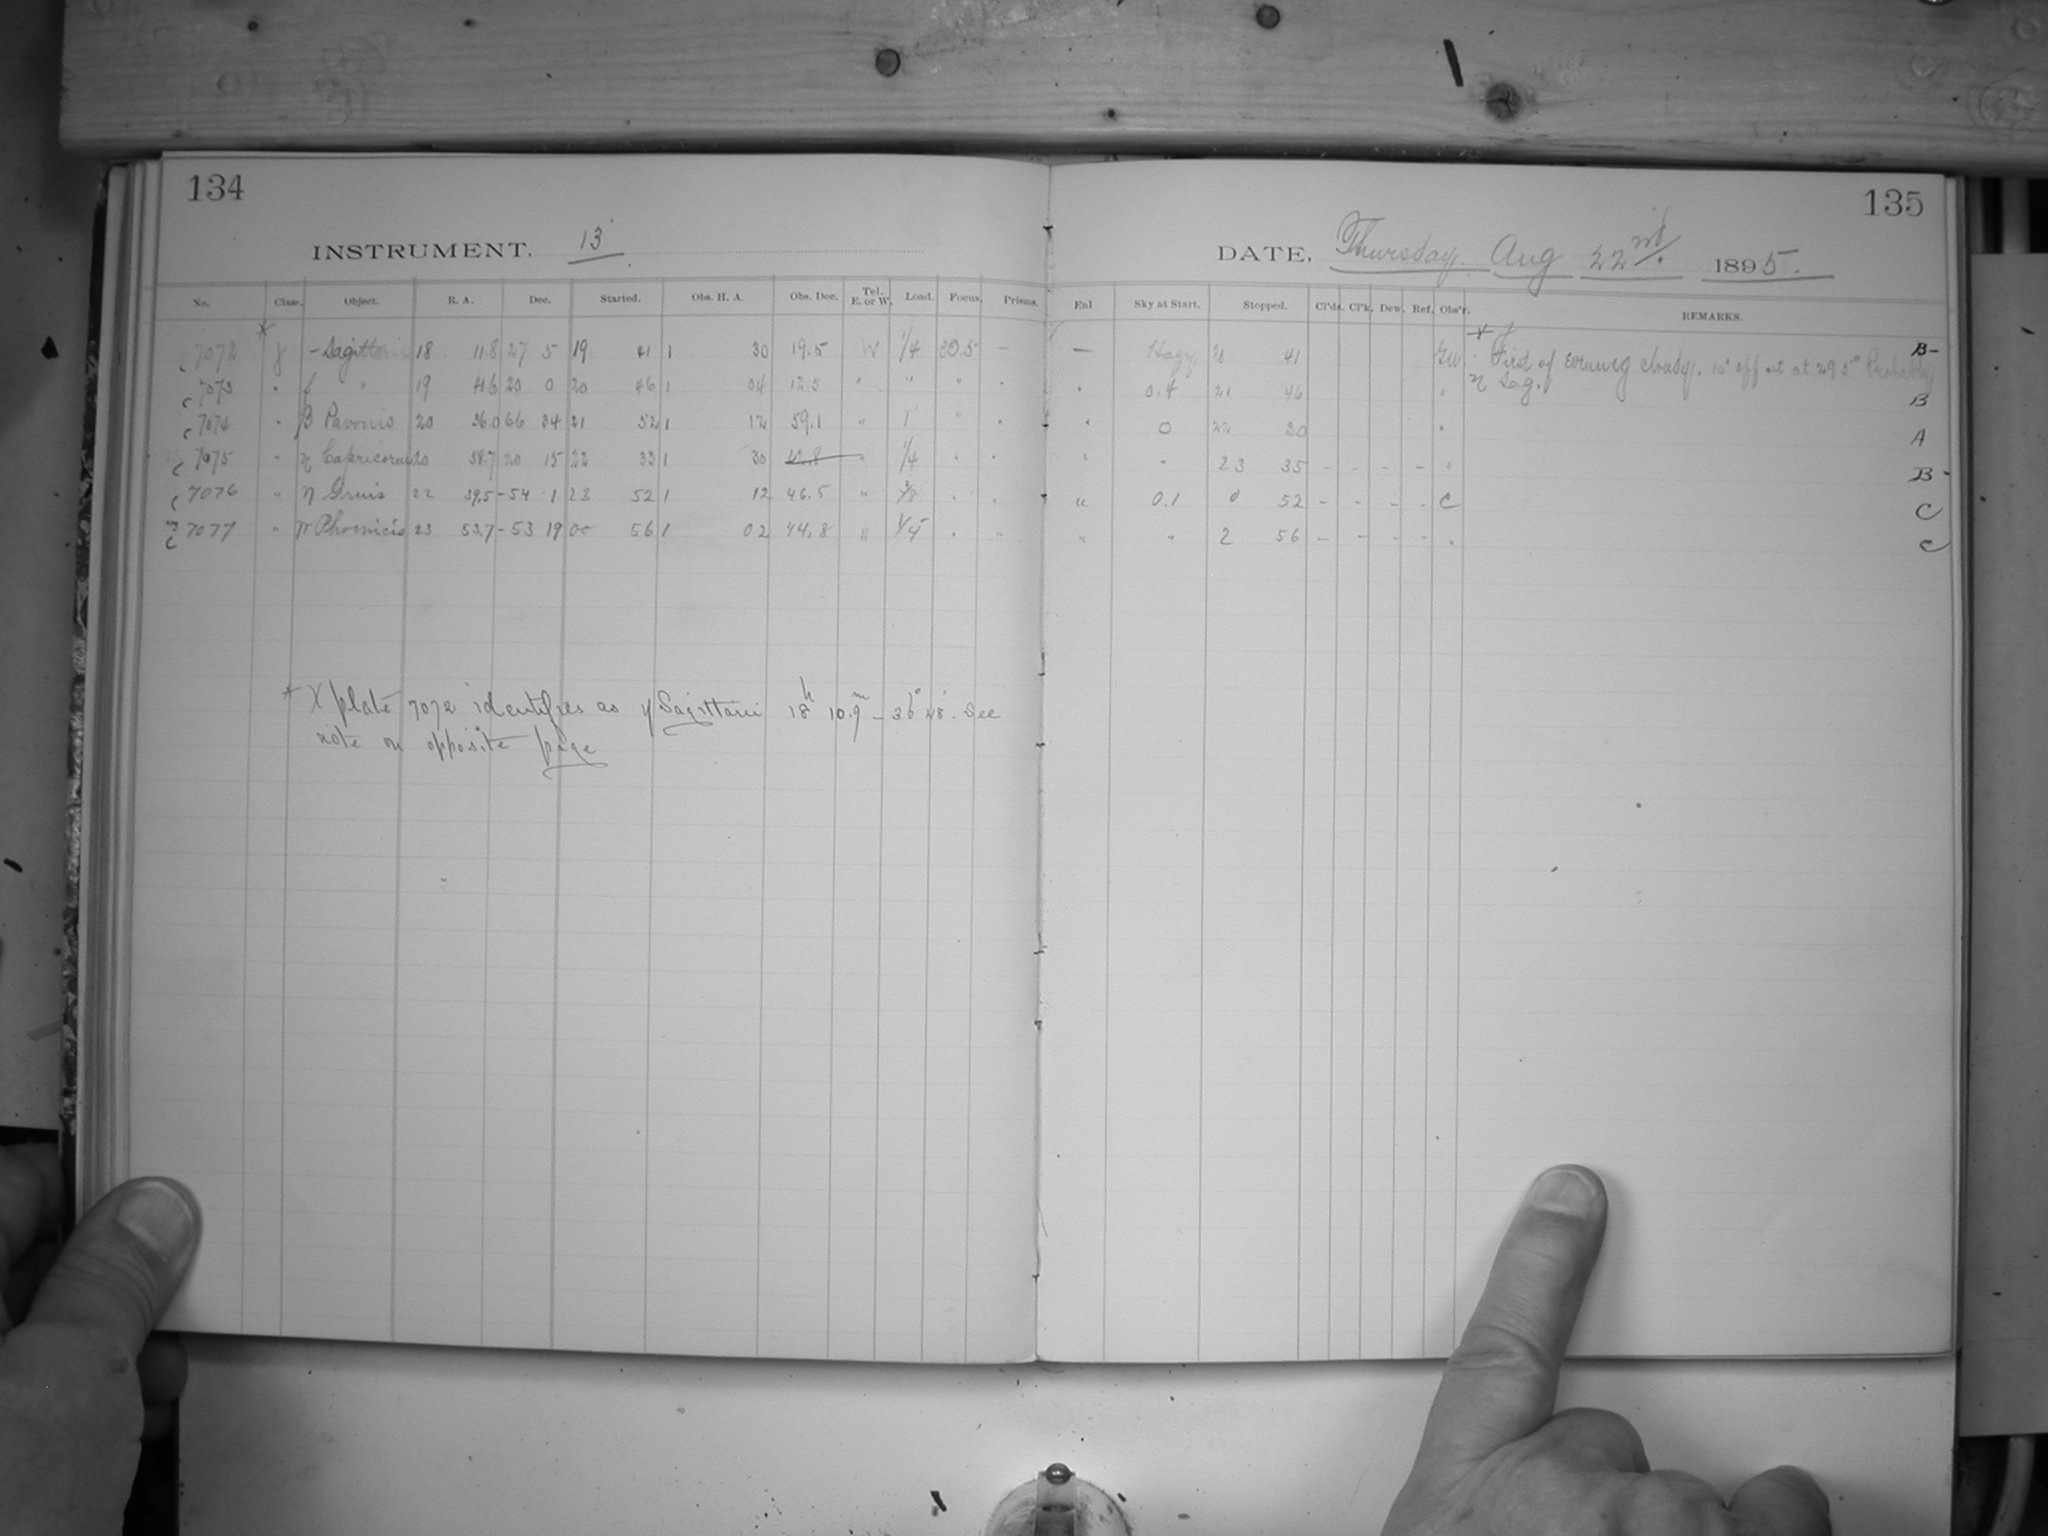 134
INSTRUMENT. 13
No. Class. Object. R. A. Dec. Started. Obs. H. A. Obs. Dec. Tel. E. or W. Load. Focus. Prisms.
7072 - Sagittarii 18 11 8 27 5 19 41 1 30 19.5 W 1/4 30.5 —
7073 " " 19 41.6 20 0 20 46 1 04 12.5 " " " "
7074 " β Pavonis 20 36.0 66 34 21 52 1 12 59.1 " 1 " "
7075 " η Capricorni 20 58.7 20 15 22 33 1 30 12.8 " 1/4 " "
7076 " η Gruis 22 39.5 -54 1 23 52 1 12 46.5 " " "
7077 " π Phoenicis 23 53.7 -53 19 00 56 1 02 44.8 " " "
* X plate 7072 identifies as η Sagittarii 18h 10.9m - 36° 48'. See
note on opposite page
135
DATE, Thursday. Aug 22nd. 1895.
Enl Sky at Start. Stopped. Cl'ds. Cl'k. Dew. Ref. Obs'r. REMARKS.
— Hazy 20 41 * First of evening cloudy. 10° off at 29.5° Probably B-
" 0.4 21 46 " η Sag. B
" 0 22 30 " A
" " 23 35 - - - - " B-
" 0.1 0 52 - - - - C C
" " 2 56 - - - - " C